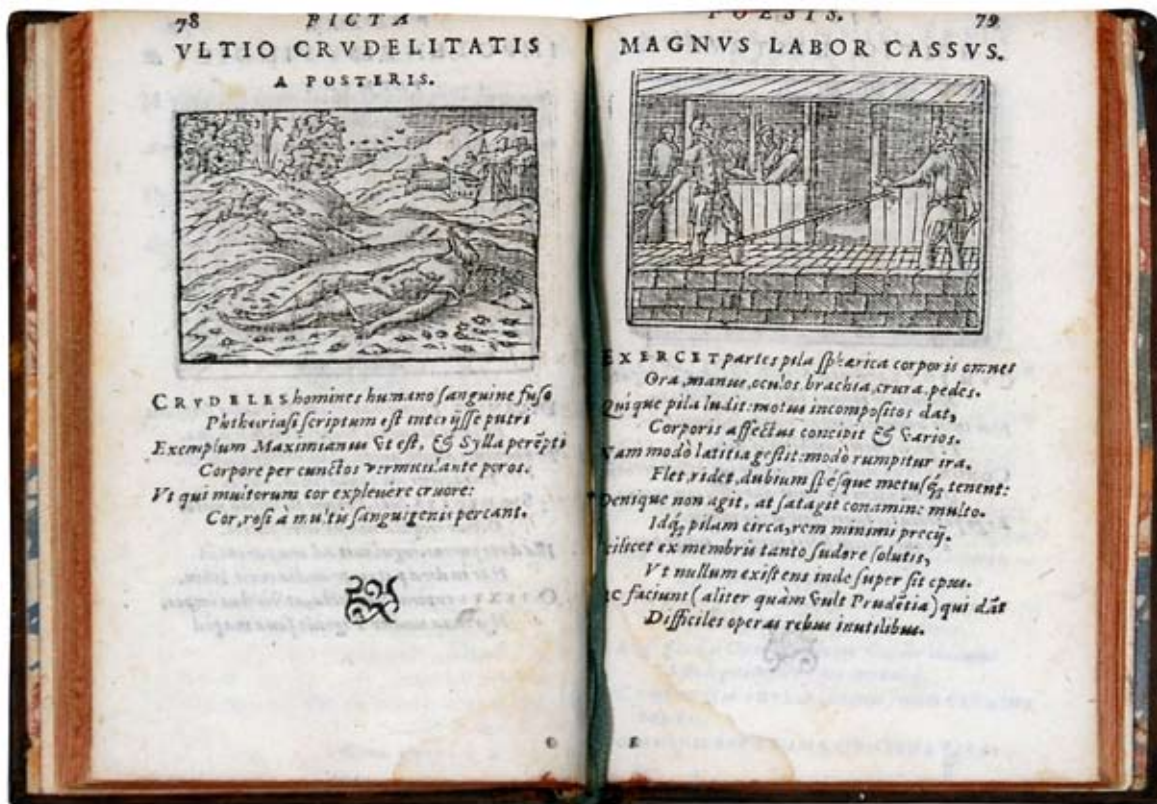 78 PICTA
VLTIO CRVDELITATIS
A POSTERIS.
CRVDELES homines humano sanguine fuso
Phtheiriasi scriptum est interijsse putri
Exemplum Maximianus vt est, & Sylla perẽpti
Corpore per cunctos vermiculante poros.
Vt qui multorum cor explevére cruore:
Cor, rosi à multis sanguigenis pereant.
POESIS. 79
MAGNVS LABOR CASSVS.
EXERCET partes pila sphærica corporis omnes
Ora, manus, oculos, brachia, crura, pedes.
Quique pila ludit: motus incompositos dat,
Corporis affectus concipit & varios.
Nam modò lætitia gestit: modò rumpitur ira.
Flet, ridet, dubium spésque metusq; tenent:
Denique non agit, at satagit conamine multo.
Idq; pilam circa, rem minimi precij.
Scilicet ex membris tanto sudore solutis,
Vt nullum existens inde super sit opus.
faciunt (aliter quàm vult Prudẽtia) qui dãt
Difficiles operas rebus inutilibus.